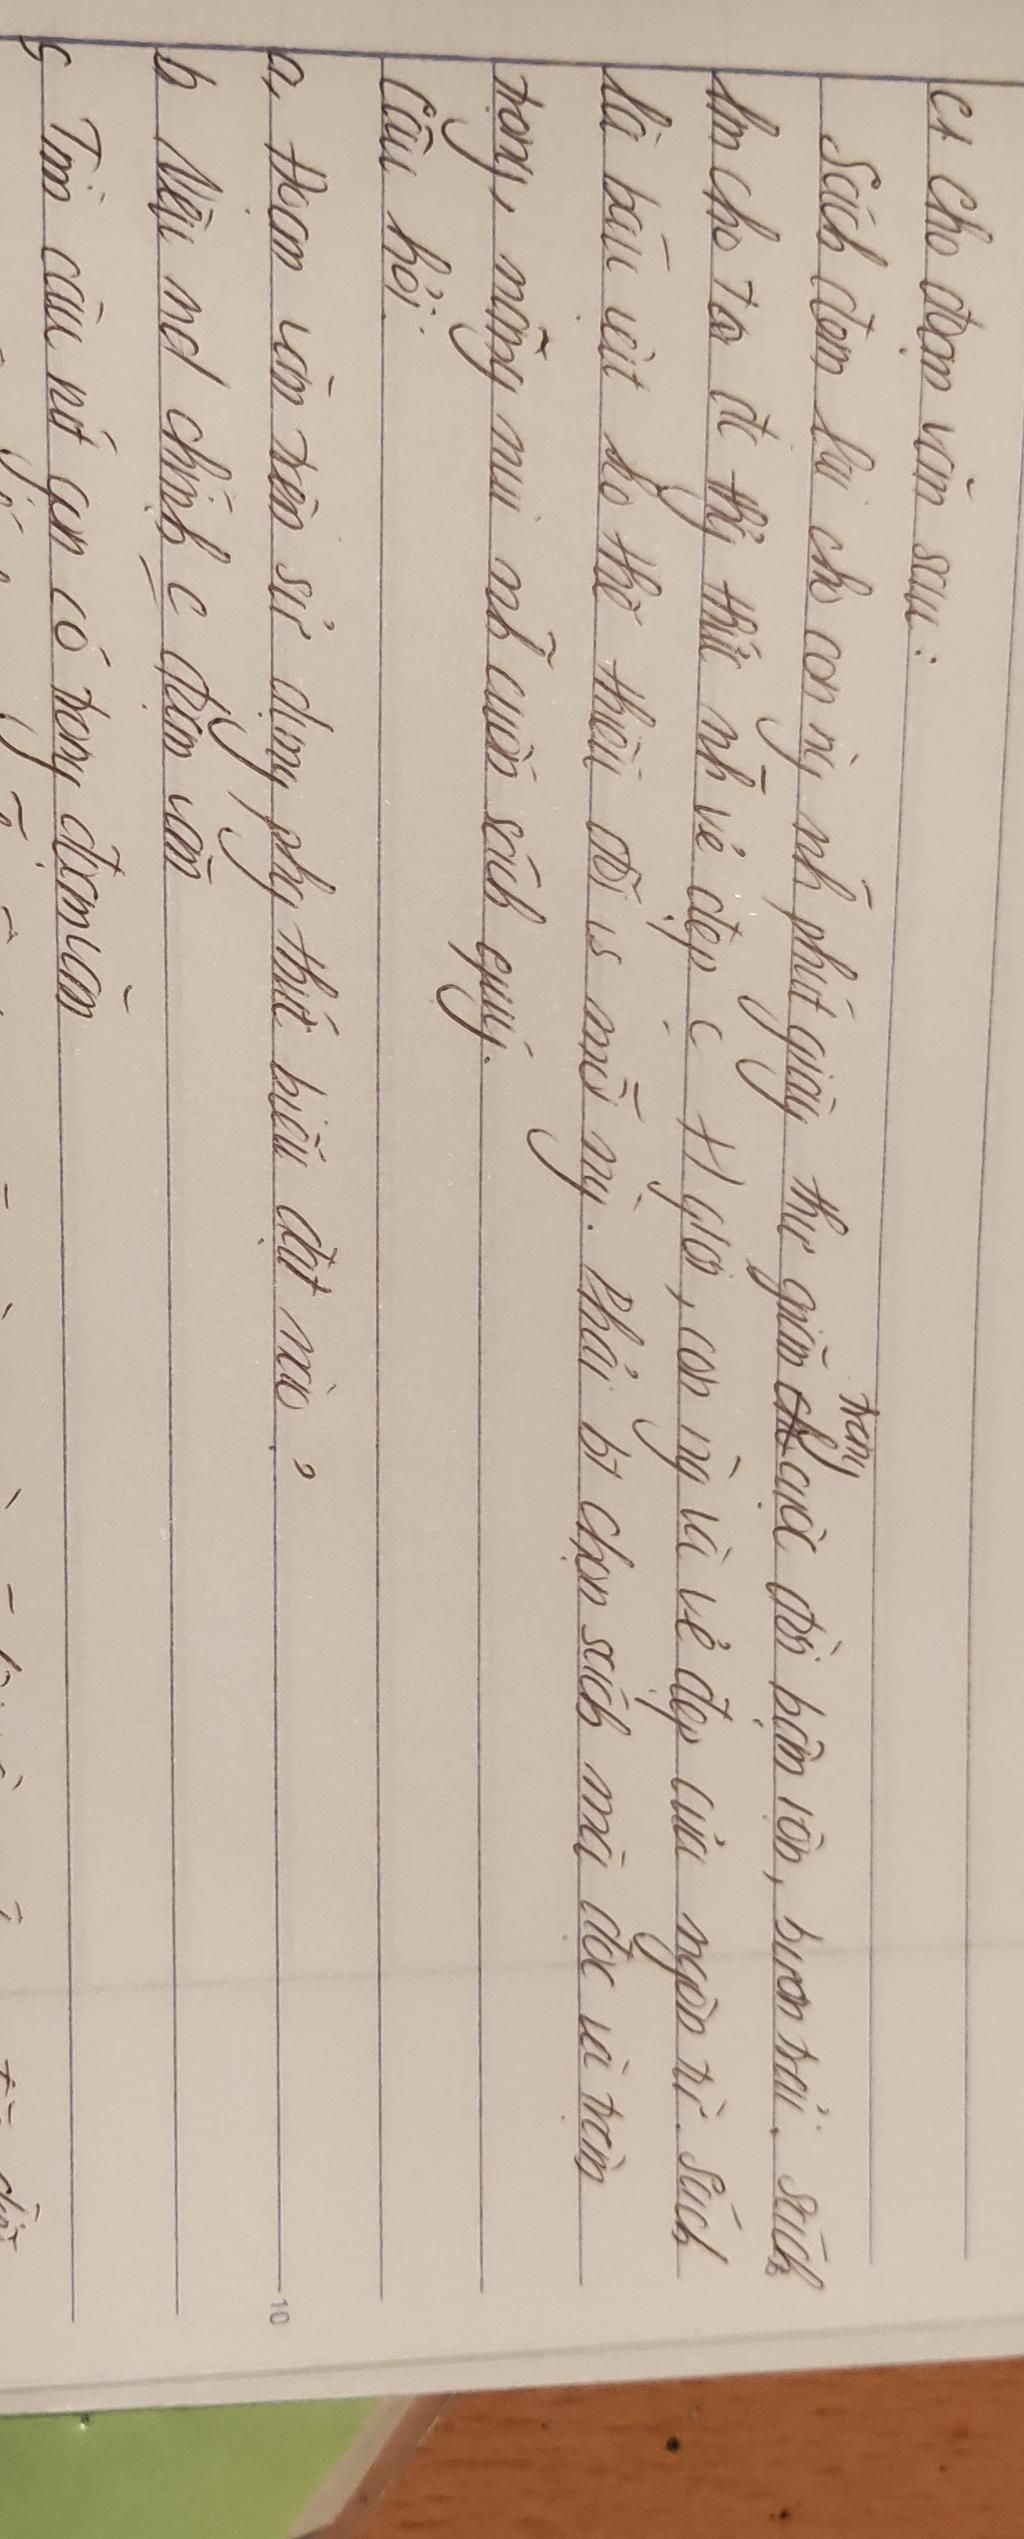 C1 Cho đoạn văn sau:
Sách đem lại cho con ng, nh~ phút giây thư giãn trong cuộc đời bận rộn, bươn trải. sách
làm cho ta đc thg thức nh~ vẻ đẹp c, TH giới, con ng và vẻ đẹp của ngôn từ. Sách
là báu vật ko thể thiếu đối vs mỗi ng. Phải bt chọn sách mà đọc và trân
trọng, nâng niu nh~ cuốn sách quý.
Câu hỏi:
a, Đoạn văn trên sử dụng phg thức biểu đạt nào?
b Nêu nd chính c, đoạn văn
c, Tìm câu rút gọn có trong đoạn văn